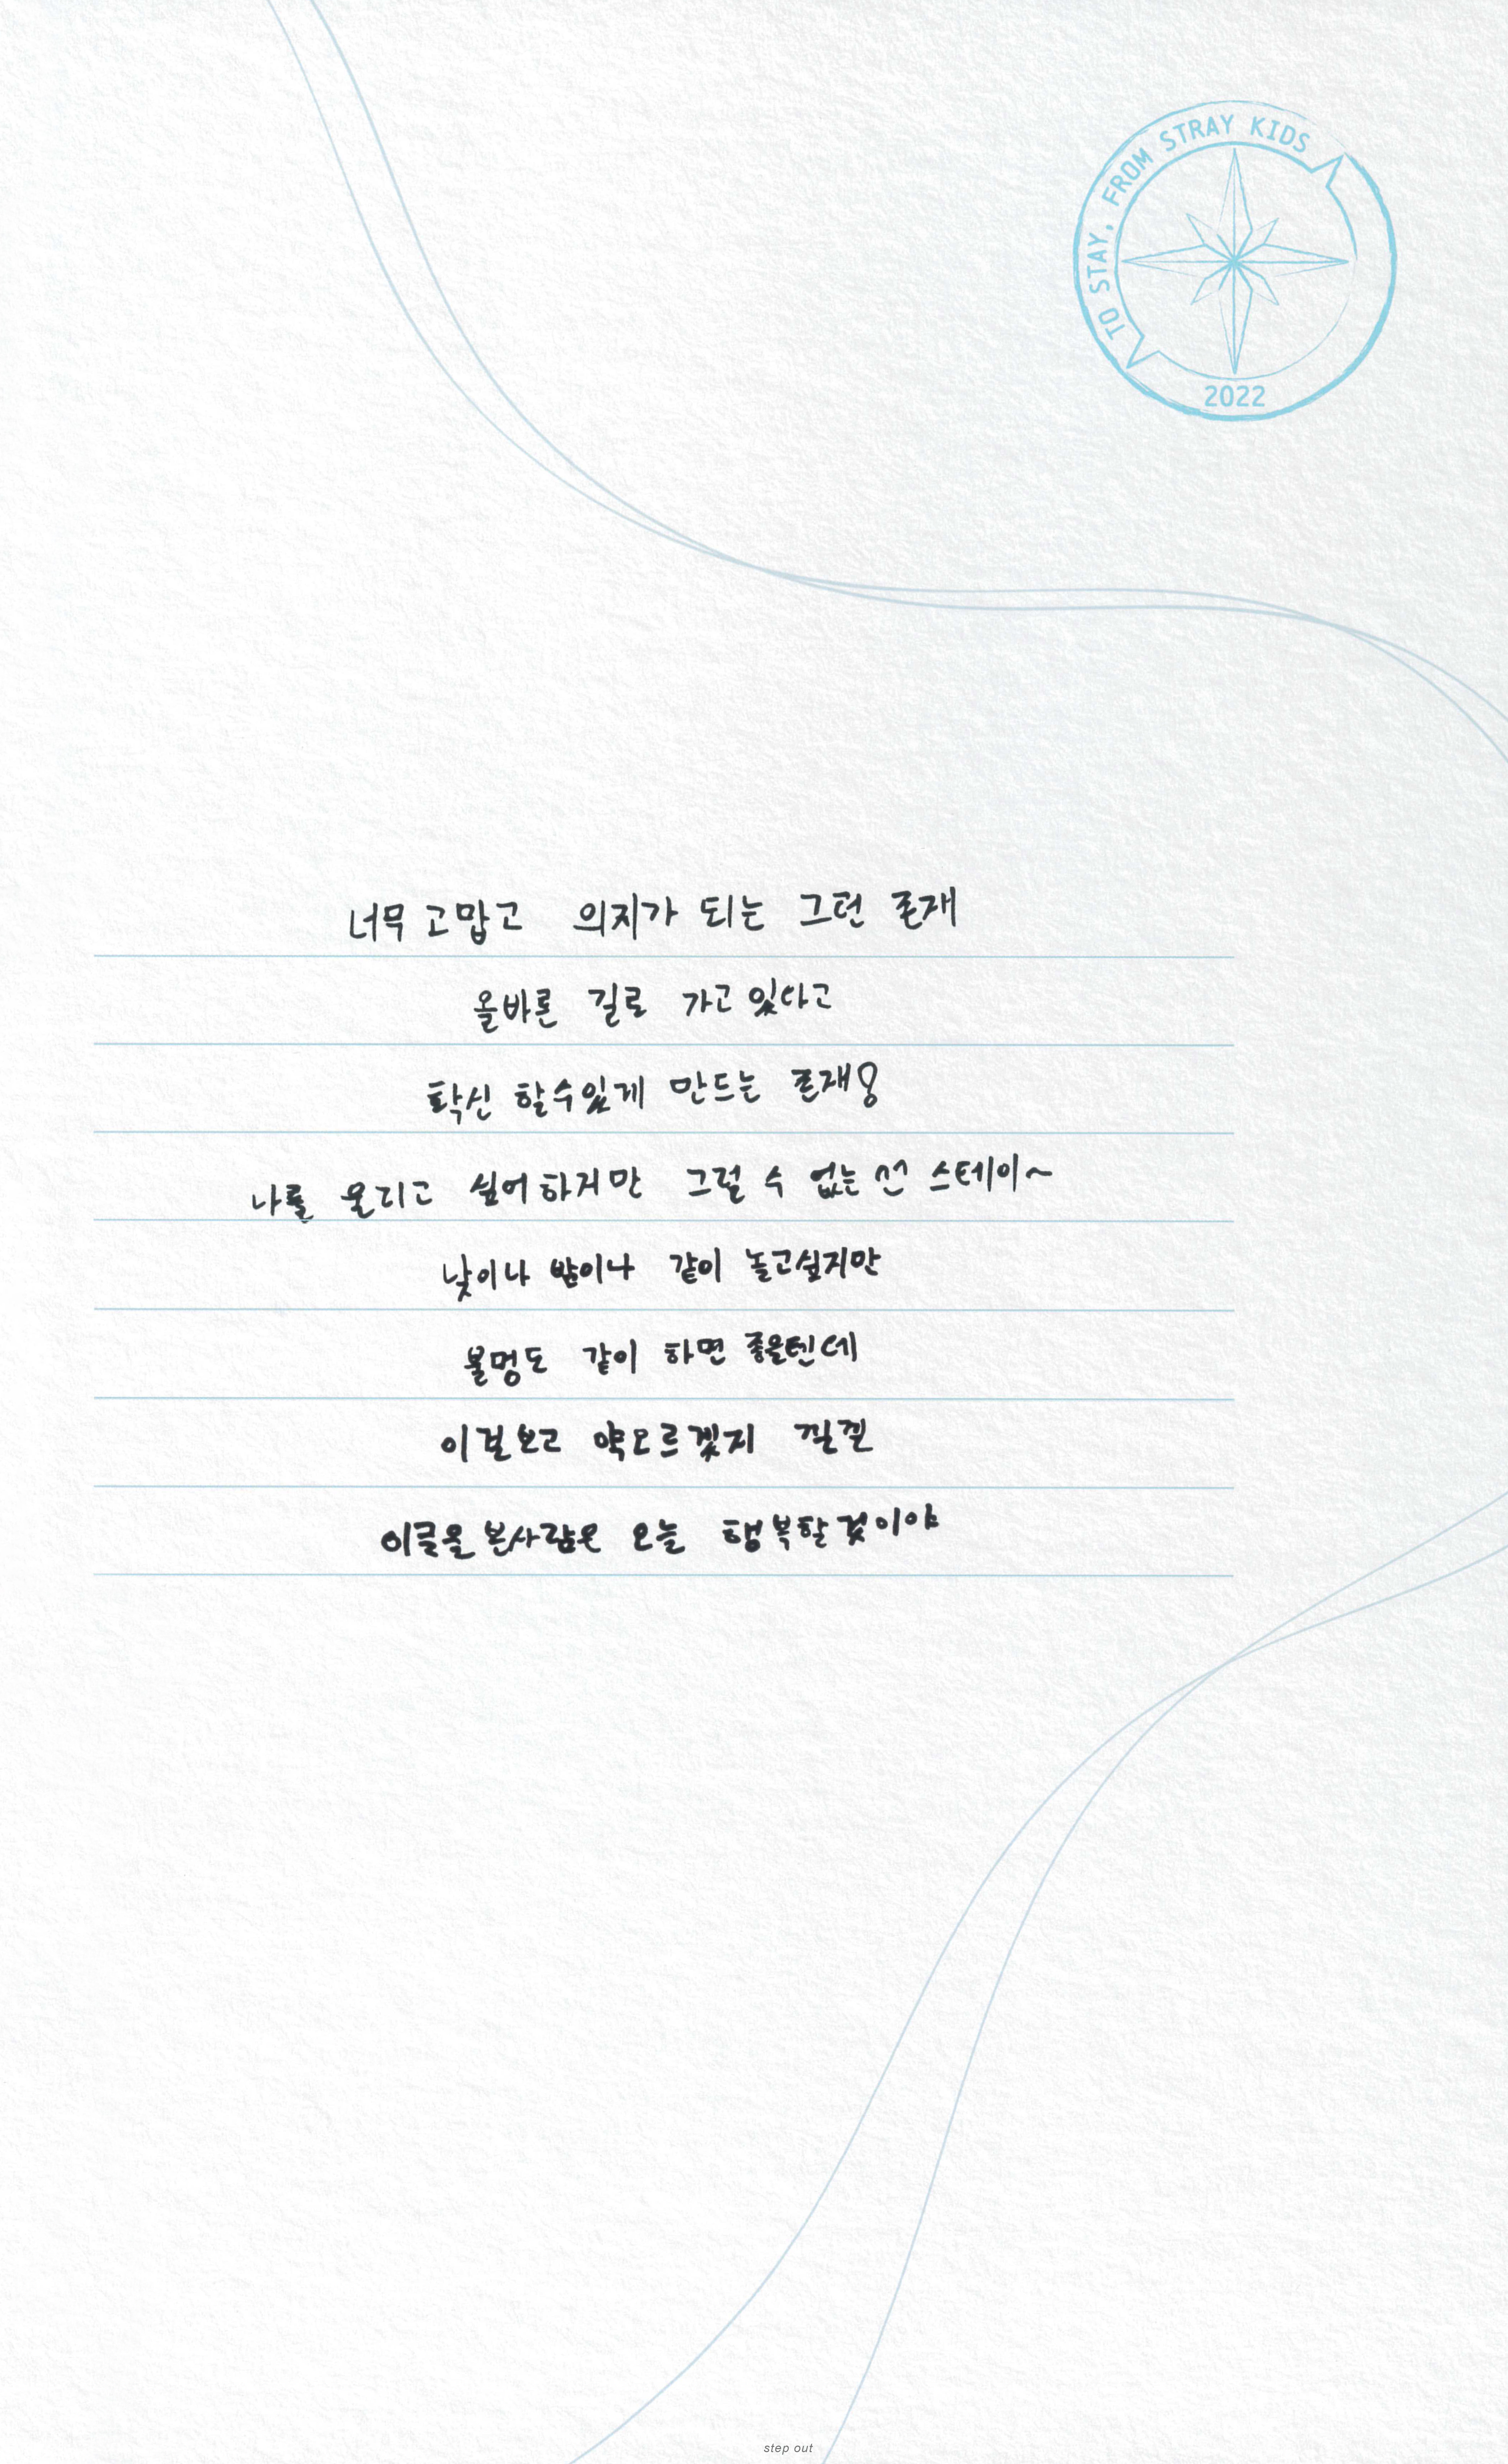 TO STAY, FROM STRAY KIDS
2022
너무 고맙고 의지가 되는 그런 존재
올바른 길로 가고 있다고
확신 할수있게 만드는 존재!
나를 울리고 싶어하지만 그럴 수 없는 ^^ 스테이~
낮이나 밤이나 같이 놀고싶지만
불멍도 같이 하면 좋을텐데
이걸보고 약오르겠지 낄낄
이글을 본사람은 오늘 행복할것이야
step out